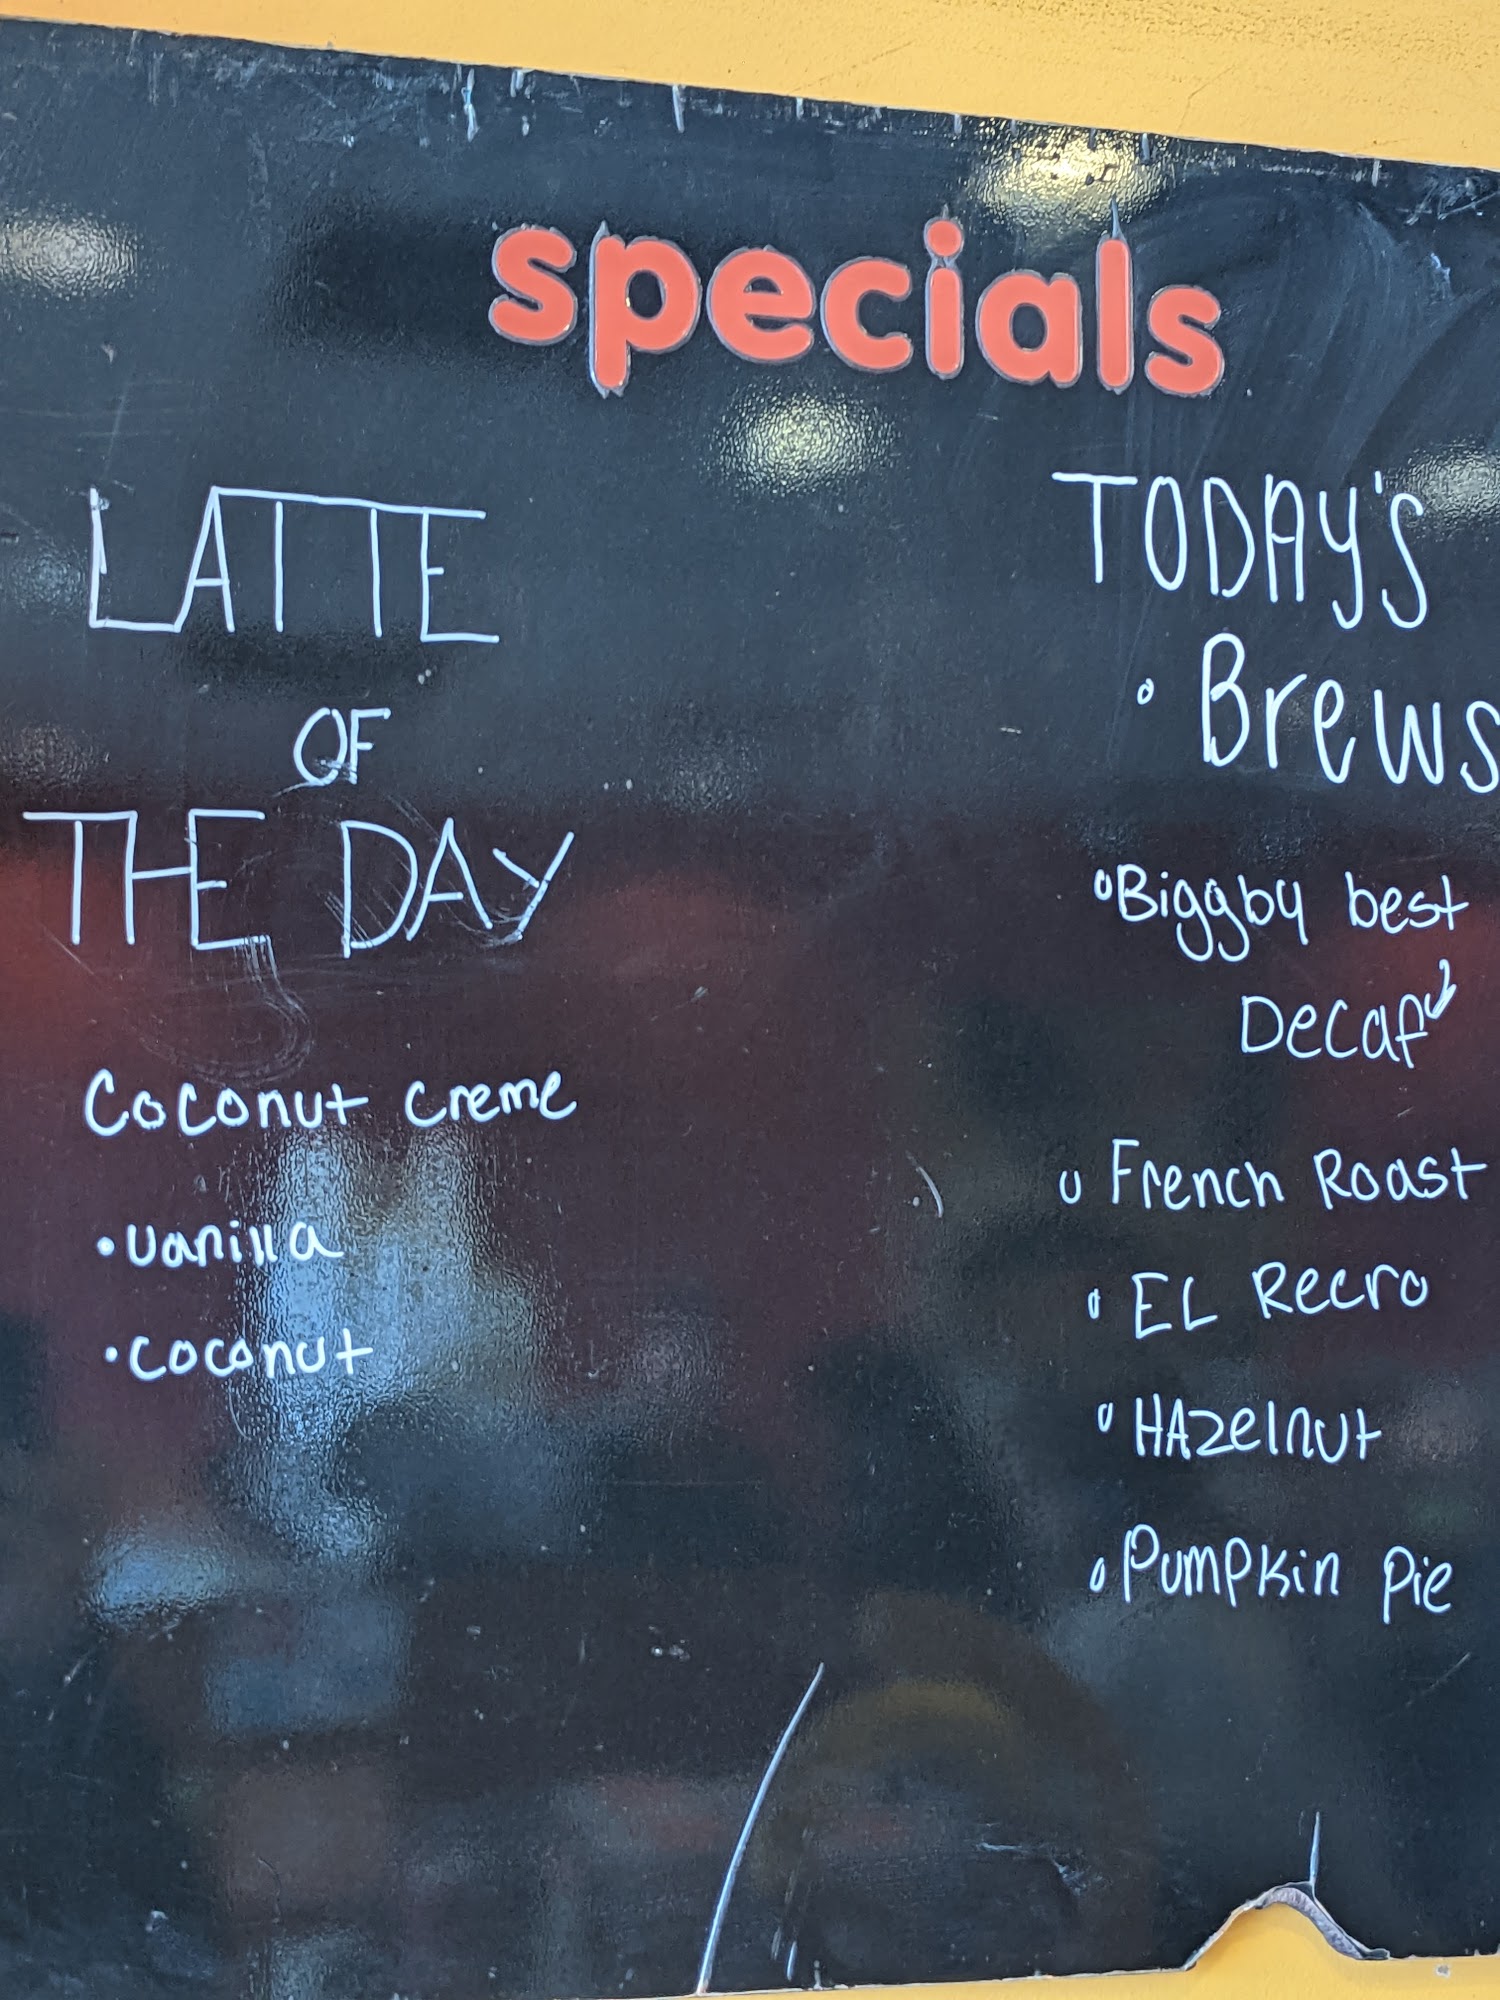 specials
LATTE
OF
THE DAY
Coconut creme
• vanilla
• coconut
TODAY'S
• Brews
• Biggby best
Decaf
• French Roast
• EL Recro
• HAzelnut
• Pumpkin Pie